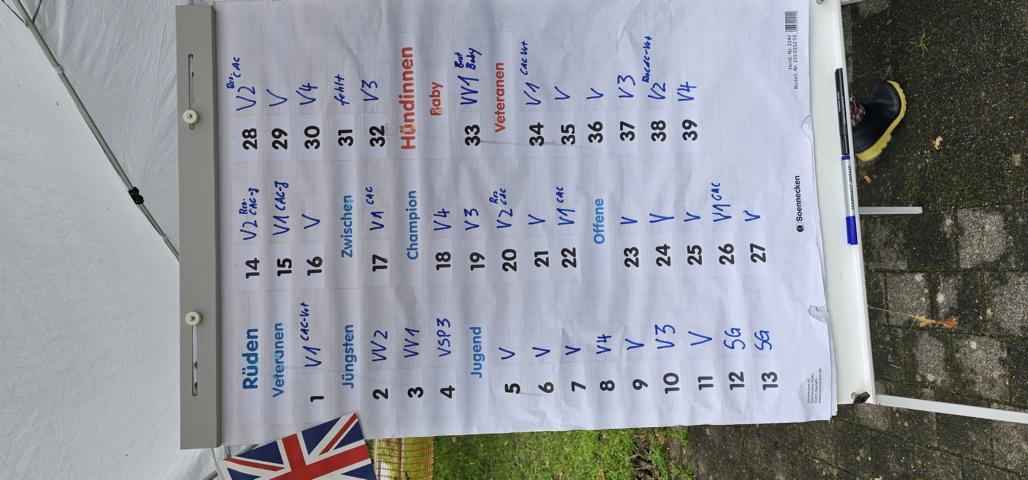 Rüden
Veteranen
1 V1 CAC-Vet
Jüngsten
2 VV2
3 VV1
4 VSP3
Jugend
5 V
6 V
7 V
8 V4
9 V
10 V3
11 V
12 SG
13 SG
14 V2 Res. CAC-J
15 V1 CAC-J
16 V
Zwischen
17 V1 CAC
Champion
18 V4
19 V3
20 V2 Res. CAC
21 V
22 V1 CAC
Offene
23 V
24 V
25 V
26 V1 CAC
27 V
28 V2 Res. CAC
29 V
30 V4
31 fehlt
32 V3
Hündinnen
Baby
33 VV1 Best Baby
Veteranen
34 V1 CAC Vet
35 V
36 V
37 V3
38 V2
39 V4
Soennecken